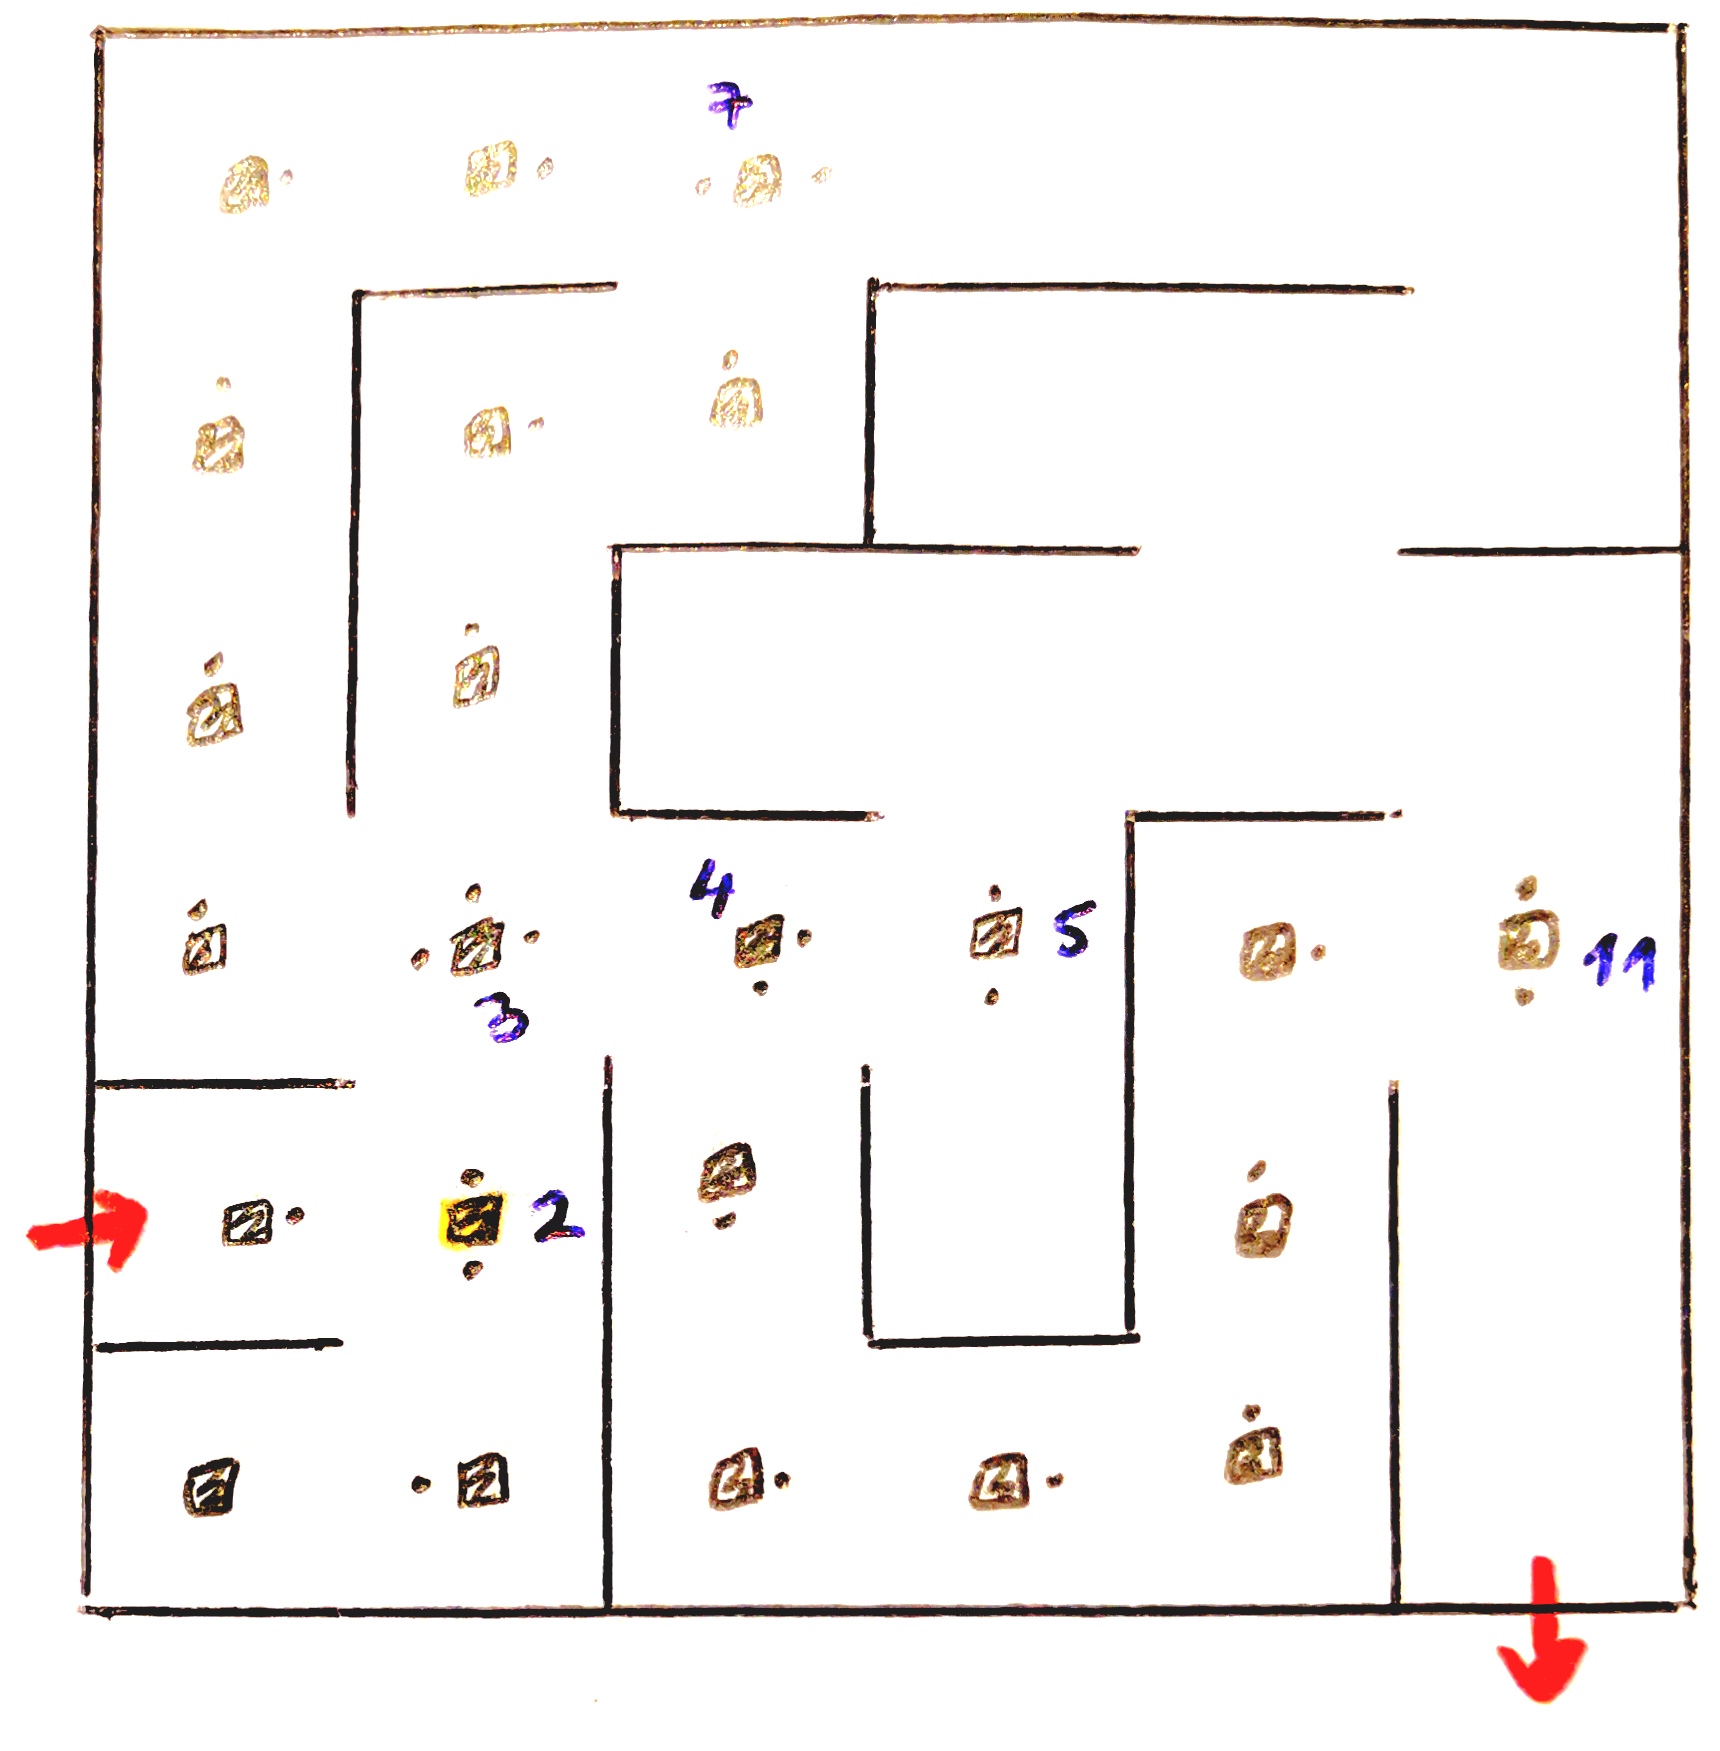 7
4
5
11
3
2